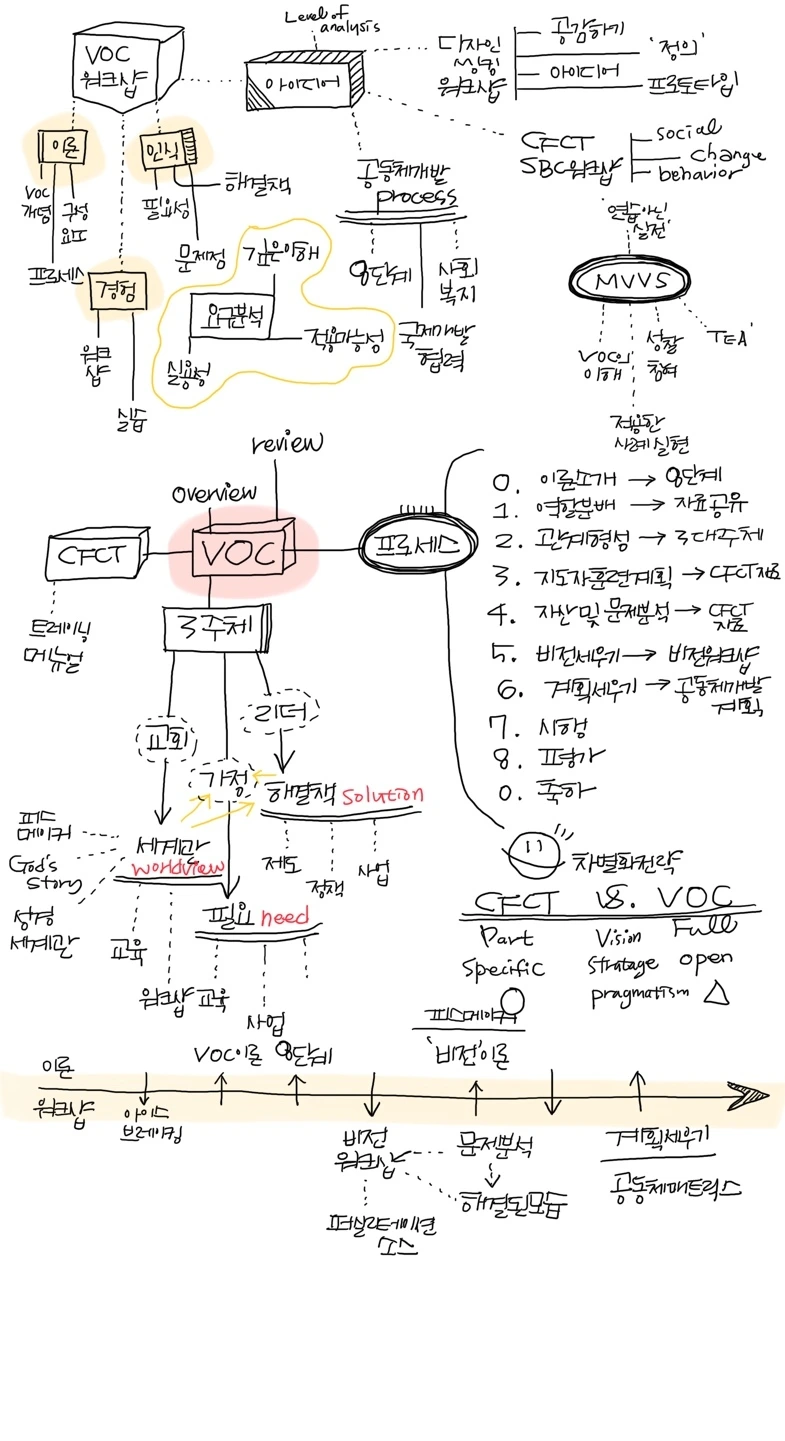 Level of
analysis
VOC
워크샵
아이디어
디자인
씽킹
워크샵
공감하기
'정의'
아이디어
프로토타입
CFCT
SBC워크샵
social
change
behavior
이론
VOC
개념
구성
요소
프로세스
인식
필요성
해결책
문제점
경험
워크
샵
실습
깊은이해
요구분석
실용성
적용가능성
공동체개발
process
8단계
사회
복지
국제개발
협력
연습아닌
'실전'
MVVS
VOC의
이해
성찰
참여
TEA'
적용한
사례실현
review
overview
CFCT
VOC
프로세스
트레이닝
메뉴얼
3주체
교회
가정
리더
해결책 solution
제도
정책
사업
피스
메이커
God's
story
성경
세계관
세계관
worldview
교육
워크샵
필요 need
교육
사업
0. 이론소개 → 8단계
1. 역할분배 → 자료공유
2. 관계형성 → 3대주체
3. 지도자훈련계획 → CFCT자료
4. 자산 및 문제분석 → CFCT
자료
5. 비전세우기 → 비전워크샵
6. 계획세우기 → 공동체개발
계획
7. 시행
8. 평가
0. 축하
차별화전략
CFCT VS. VOC
Part
specific
Vision
stratage
pragmatism
Full
open
△
피스메이커
'비전'이론
이론
워크샵
아이스
브레이킹
VOC이론
8단계
비전
워크샵
퍼실리테이션
소스
문제분석
해결된모습
계획세우기
공동체매트릭스